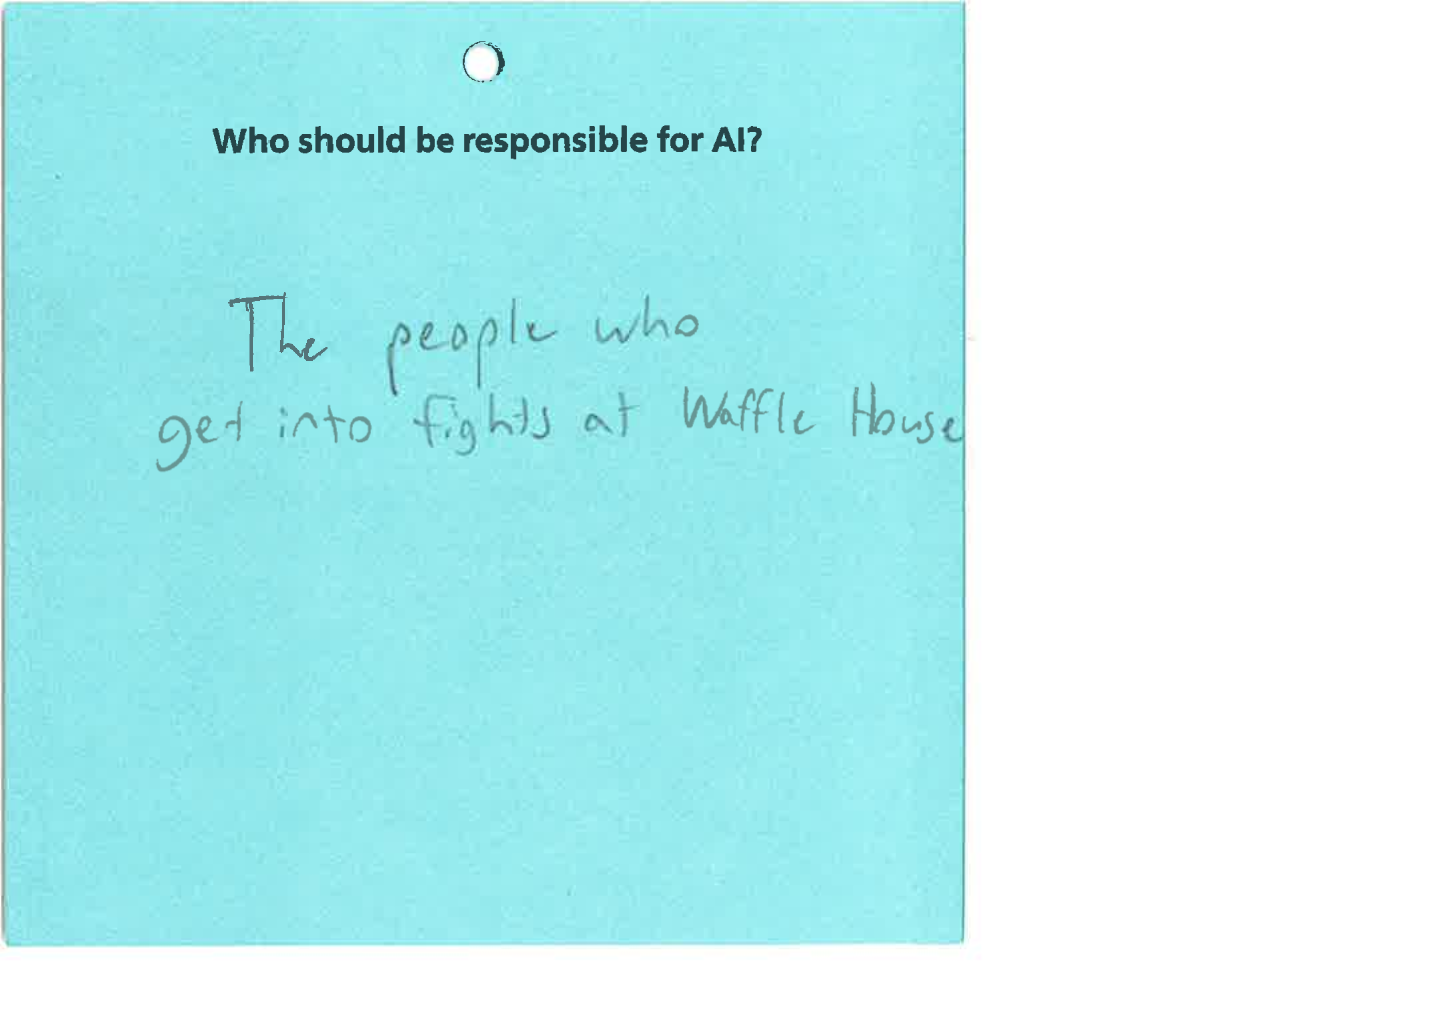 Who should be responsible for AI?
The people who
get into fights at Waffle House